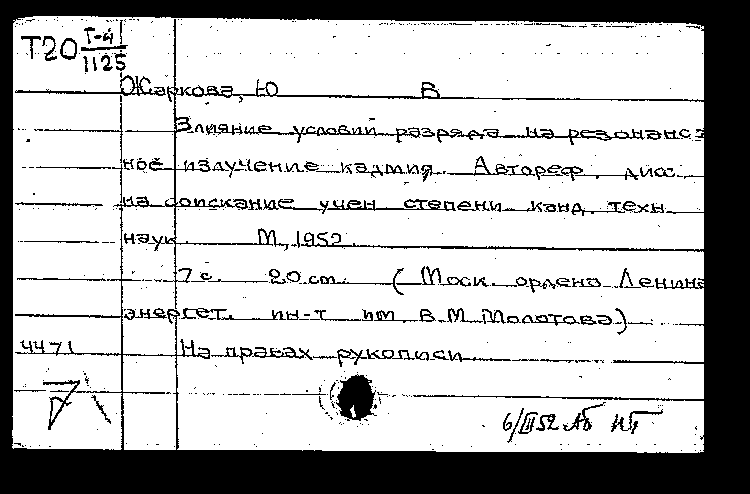 Т20 Т-4/1125
Жаркова, Ю В
Влияние условий разряда на резонанс-
ное излучение кадмия. Автореф. дисс.
на соискание учен степени канд. техн.
наук. М., 1952.
7 с. 20 см. (Моск. ордена Ленина
энергет. ин-т им. В.М. Молотова)
4471 На правах рукописи.
6/III 52